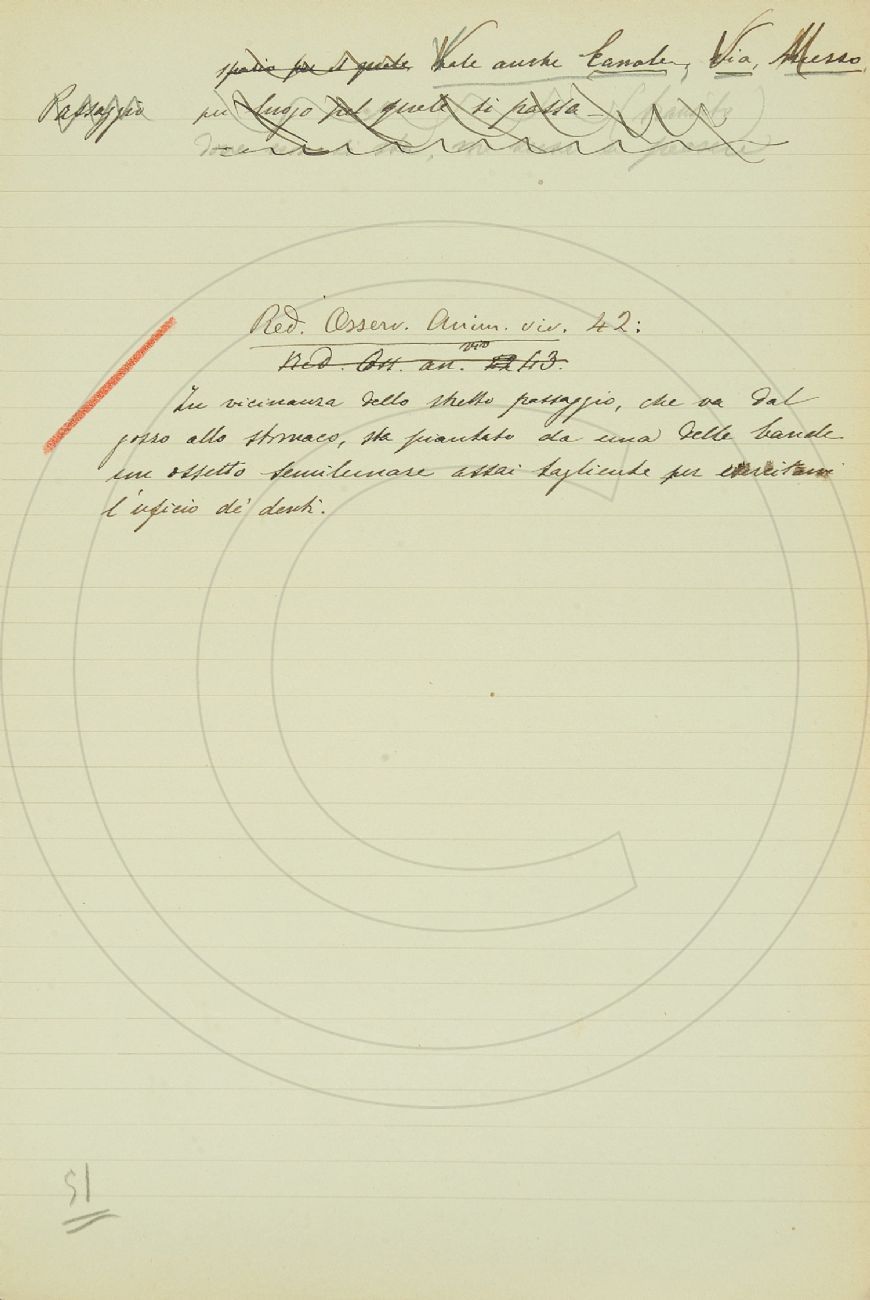 spazio pe il quale Vale anche Canale, Via, Messo.
Passaggio per luogo pel quale si passa
Red. Osserv. Anim. viv. 42:
Red. Oss. an. viv 43.
In vicinanza dello stretto passaggio, che va dal
gozzo allo stomaco, sta piantato da una delle bande
un ossetto semilunare assai tagliente per esercitarvi
l'uficio de' denti.
SI